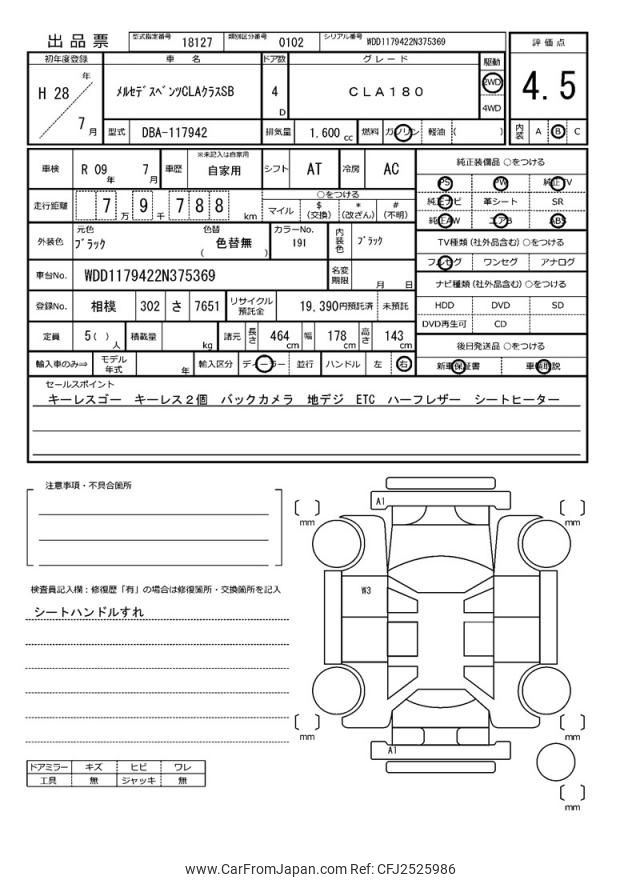 出品票 型式指定番号 18127 類別区分番号 0102 シリアル番号 WDD1179422N375369
評価点
4.5
内装 A B C
初年度登録 車名 ドア数 グレード 駆動
H 28 年 7 月 ﾒﾙｾﾃﾞｽﾍﾞﾝﾂCLAｸﾗｽSB 4 D CLA180 2WD 4WD
型式 DBA-117942 排気量 1,600 cc 燃料 ガソリン 軽油 ( )
車検 R 09 年 7 月 車歴 ※未記入は自家用 自家用 シフト AT 冷房 AC
走行距離 7 万 9 千 7 8 8 km ○をつける マイル $ (交換) * (改ざん) # (不明)
外装色 元色 ﾌﾞﾗｯｸ 色替 ( 色替無 ) カラーNo. 191 内装色 ﾌﾞﾗｯｸ
車台No. WDD1179422N375369 名変期限 月 日
登録No. 相模 302 さ 7651 リサイクル預託金 19,390円預託済 未預託
定員 5( ) 人 積載量 kg 諸元 長さ 464 cm 幅 178 cm 高さ 143 cm
輸入車のみ⇒ モデル年式 年 輸入区分 ディーラー 並行 ハンドル 左 右
純正装備品 ○をつける
PS PW 純正TV
純正ナビ 革シート SR
純正AW エアB ABS
TV種類(社外品含む)○をつける
フルセグ ワンセグ アナログ
ナビ種類(社外品含む)○をつける
HDD DVD SD
DVD再生可 CD
後日発送品 ○をつける
新車保証書 車輌取説
セールスポイント
キーレスゴー キーレス2個 バックカメラ 地デジ ETC ハーフレザー シートヒーター
注意事項・不具合箇所
検査員記入欄：修復歴「有」の場合は修復箇所・交換箇所を記入
シートハンドルすれ
ドアミラー キズ ヒビ ワレ
工具 無 ジャッキ 無
A1
mm mm
W3
mm mm
A1
mm
www.CarFromJapan.com Ref: CFJ2525986